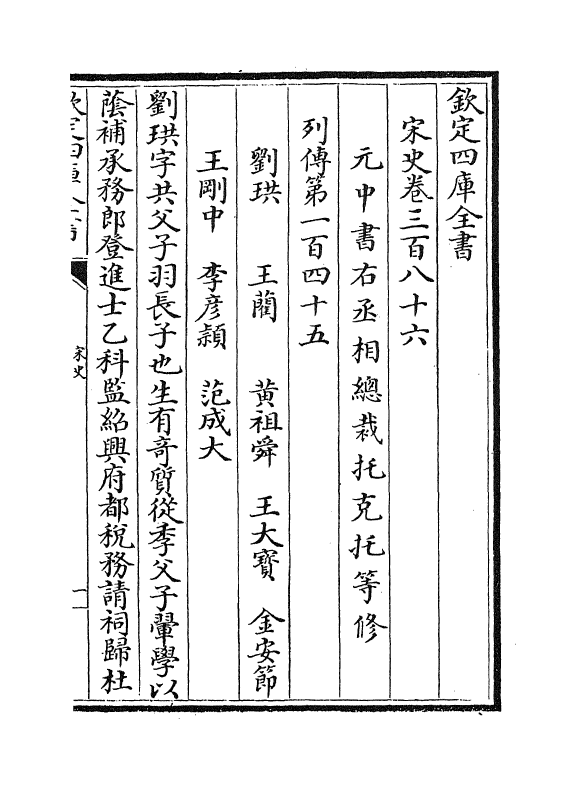 欽定四庫全書
宋史卷三百八十六
元中書右丞相總裁托克托等修
列傳第一百四十五
劉珙 王藺 黃祖舜 王大寶 金安節
王剛中 李彦穎 范成大
劉珙字共父子羽長子也生有奇質從季父子翬學以
蔭補承務郎登進士乙科監紹興府都稅務請祠歸杜
宋史